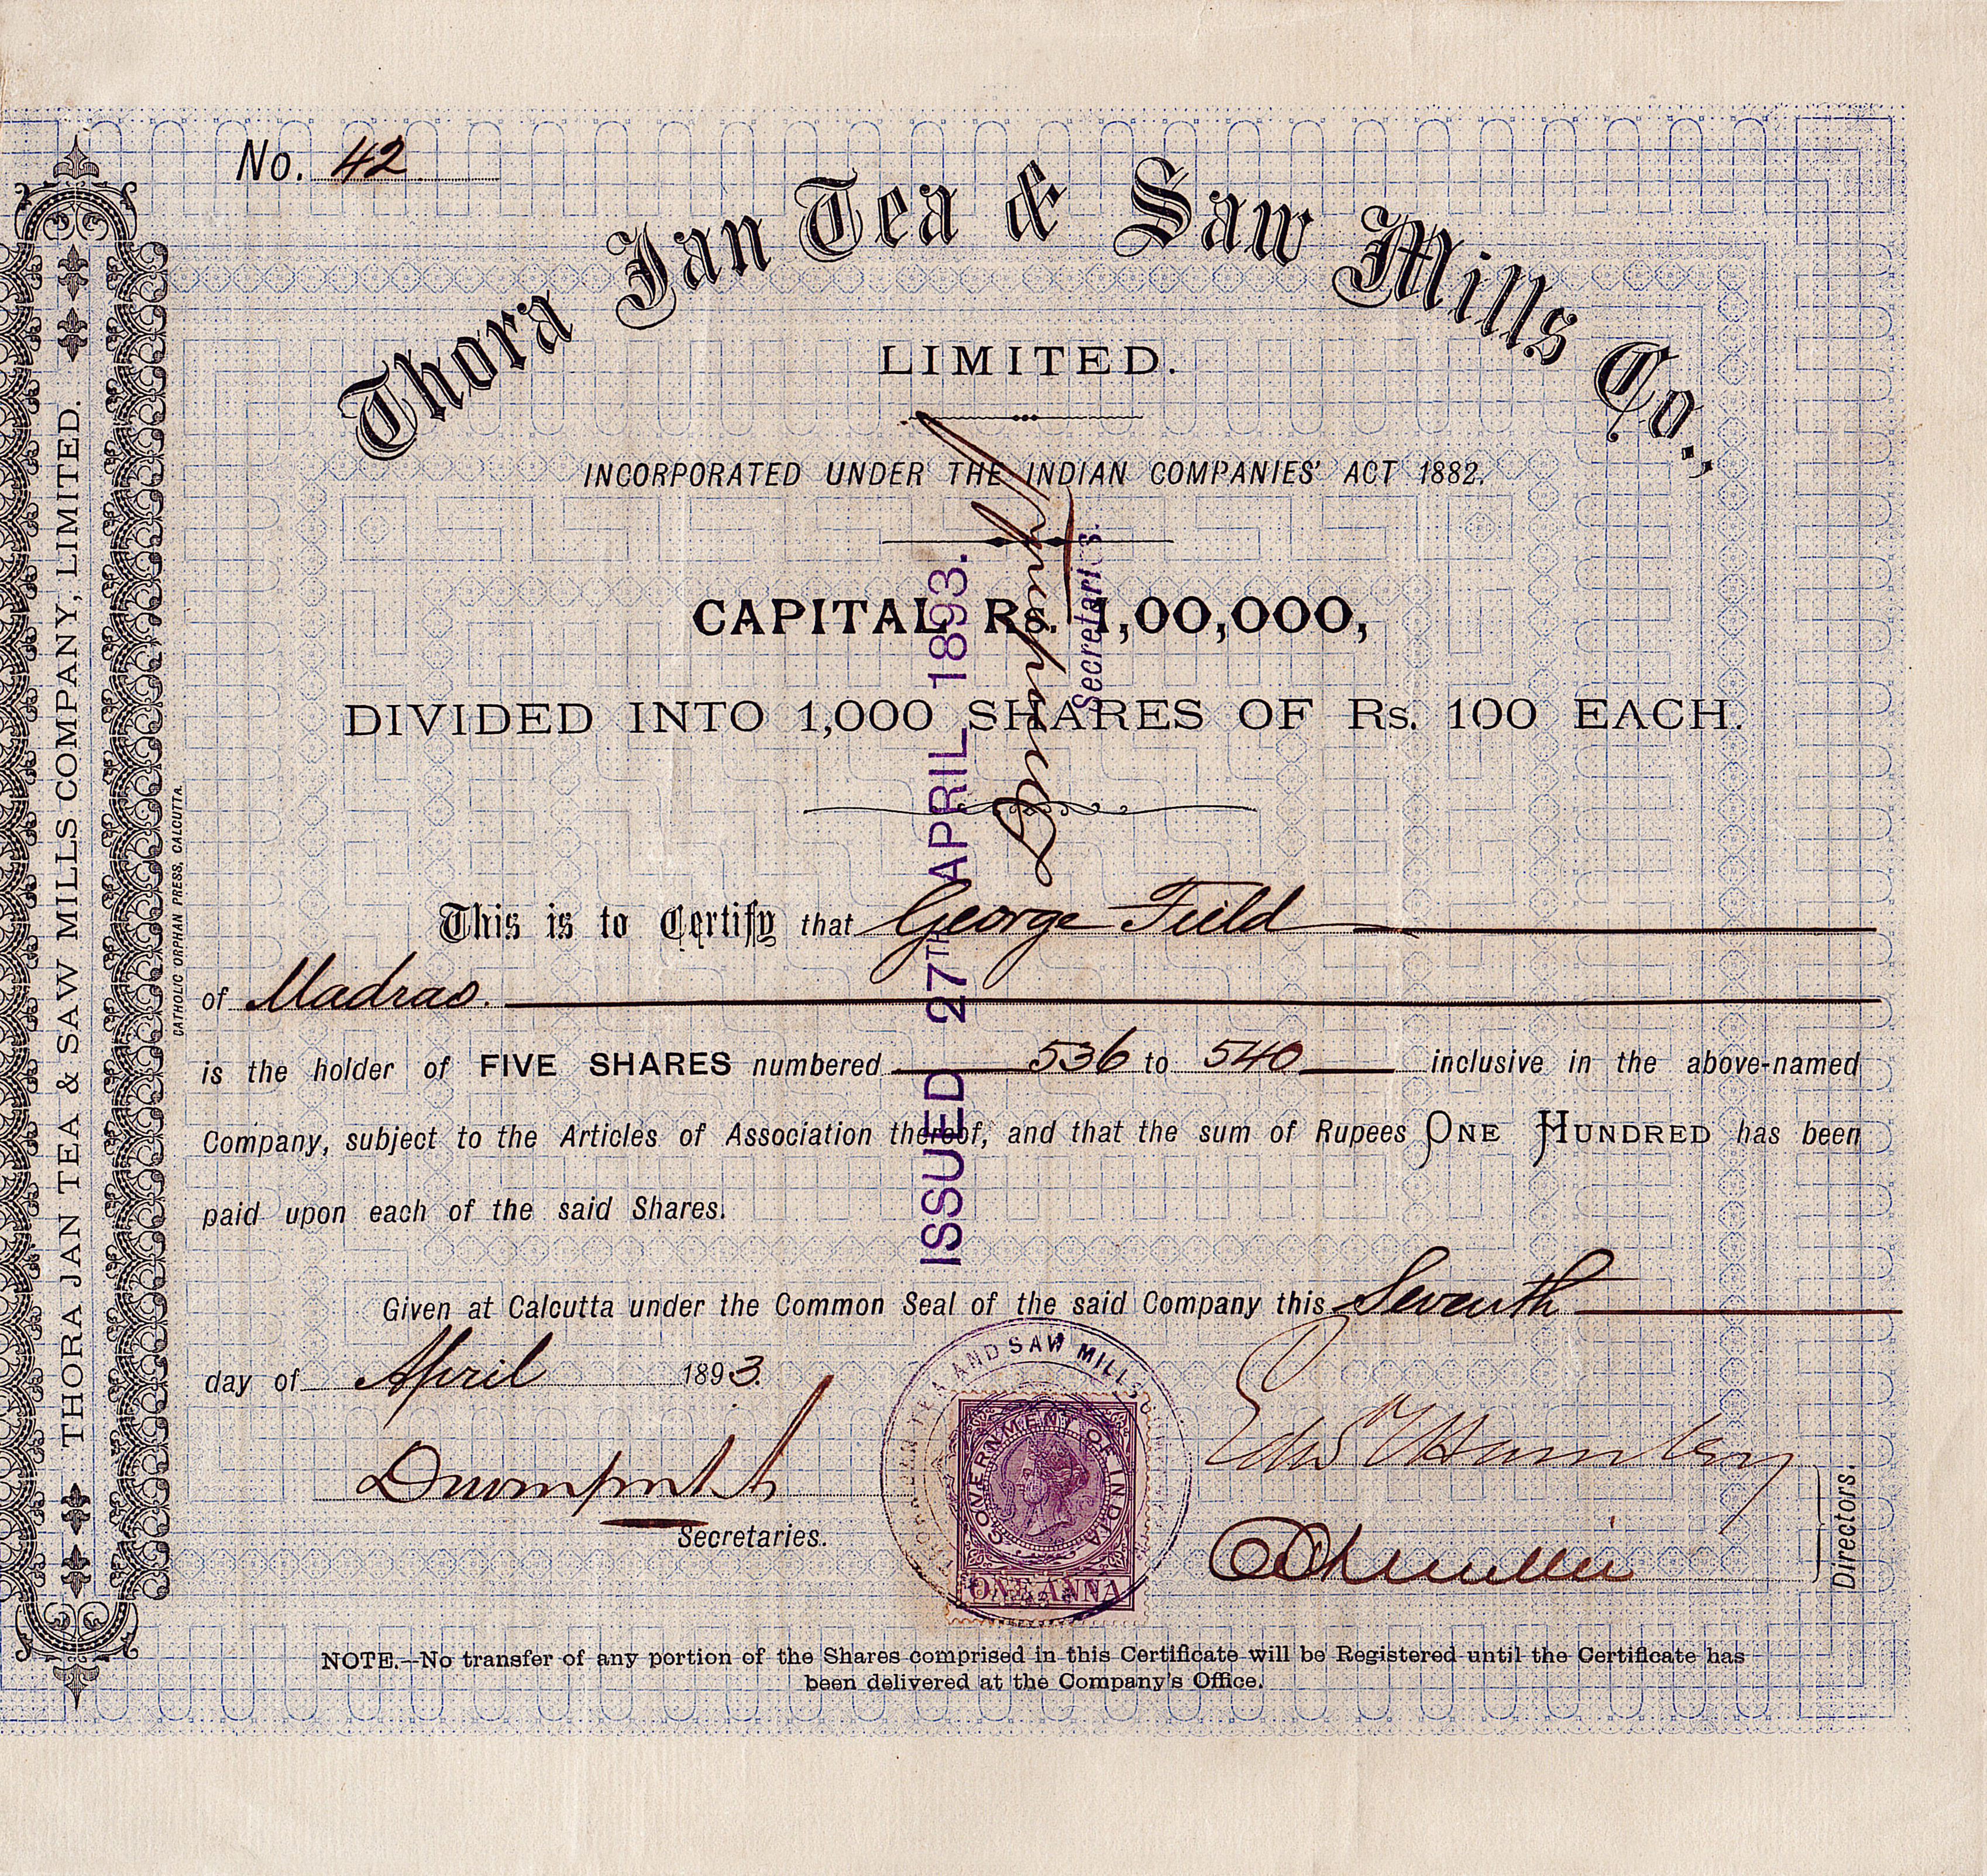 No. 42
Thora Jan Tea & Saw Mills Co.,
LIMITED.
INCORPORATED UNDER THE INDIAN COMPANIES' ACT 1882.
CAPITAL Rs. 1,00,000,
DIVIDED INTO 1,000 SHARES OF Rs. 100 EACH.
This is to Certify that George Field
of Madras.
is the holder of FIVE SHARES numbered 536 to 540 inclusive in the above-named
Company, subject to the Articles of Association thereof, and that the sum of Rupees ONE HUNDRED has been
paid upon each of the said Shares.
Given at Calcutta under the Common Seal of the said Company this Seventh
day of April 1893.
Secretaries.
Directors.
NOTE.—No transfer of any portion of the Shares comprised in this Certificate will be Registered until the Certificate has
been delivered at the Company's Office.
THORA JAN TEA & SAW MILLS COMPANY, LIMITED.
CATHOLIC ORPHAN PRESS, CALCUTTA.
ISSUED 27TH APRIL 1893.
Secretaries.
TEA AND SAW MILLS
GOVERNMENT OF INDIA
ONE ANNA